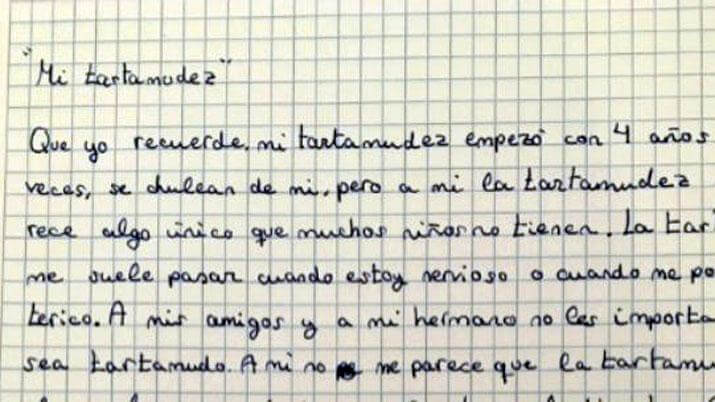 "Mi tartamudez"
Que yo recuerde, mi tartamudez empezó con 4 años
veces, se chulean de mi, pero a mi la tartamudez
rece algo único que muchos niños no tienen. La tar
me suele pasar cuando estoy nervioso o cuando me po
terico. A mis amigos y a mi hermano no les importa
sea tartamudo. A mi no me parece que la tartamu